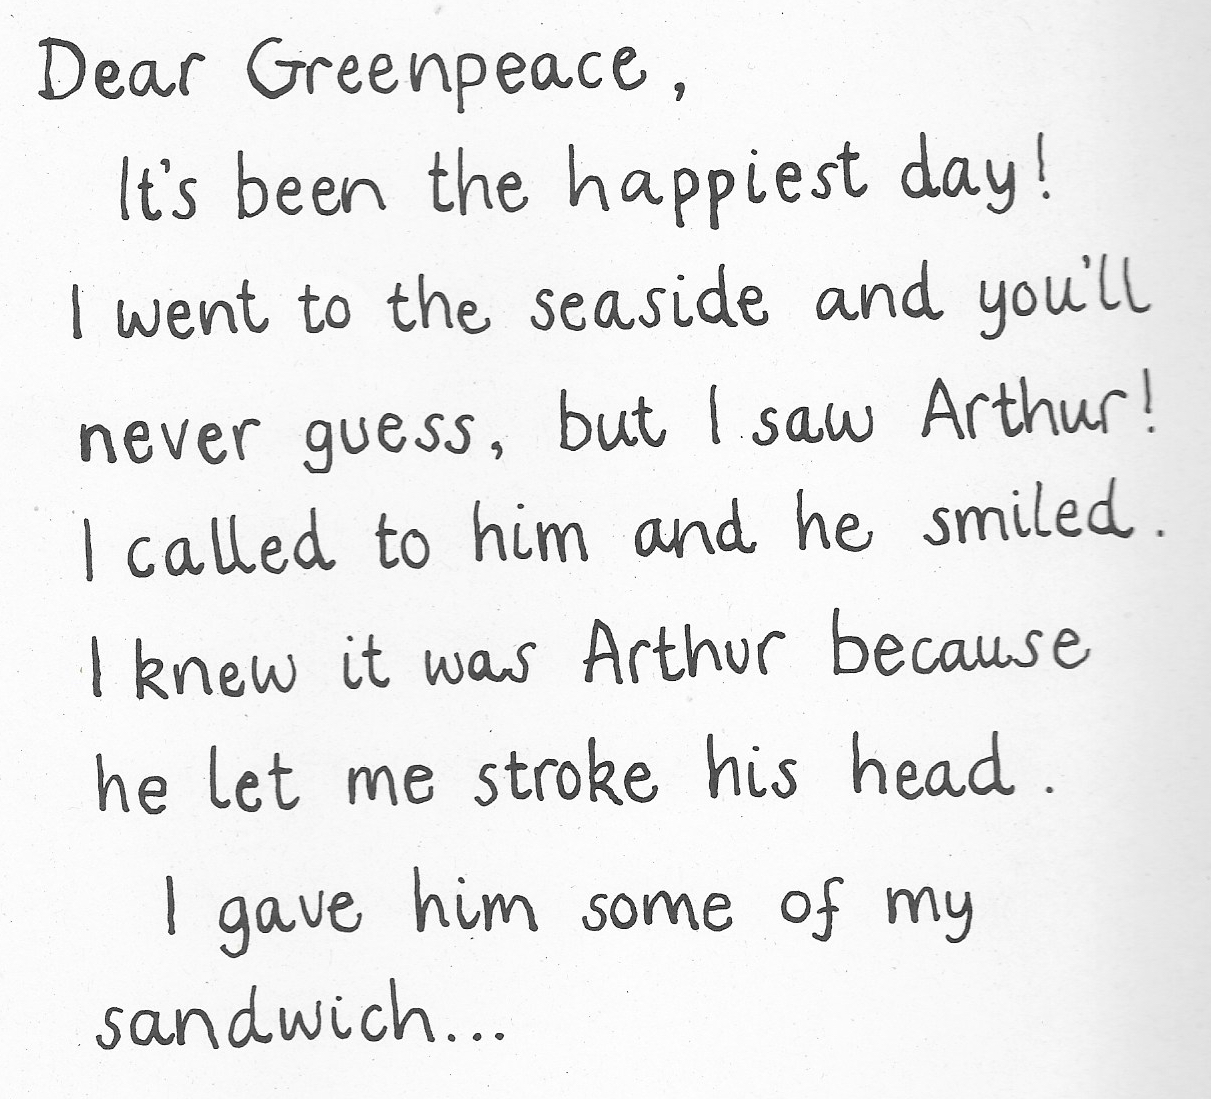 Dear Greenpeace,
It's been the happiest day!
I went to the seaside and you'll
never guess, but I saw Arthur!
I called to him and he smiled.
I knew it was Arthur because
he let me stroke his head.
I gave him some of my
sandwich...